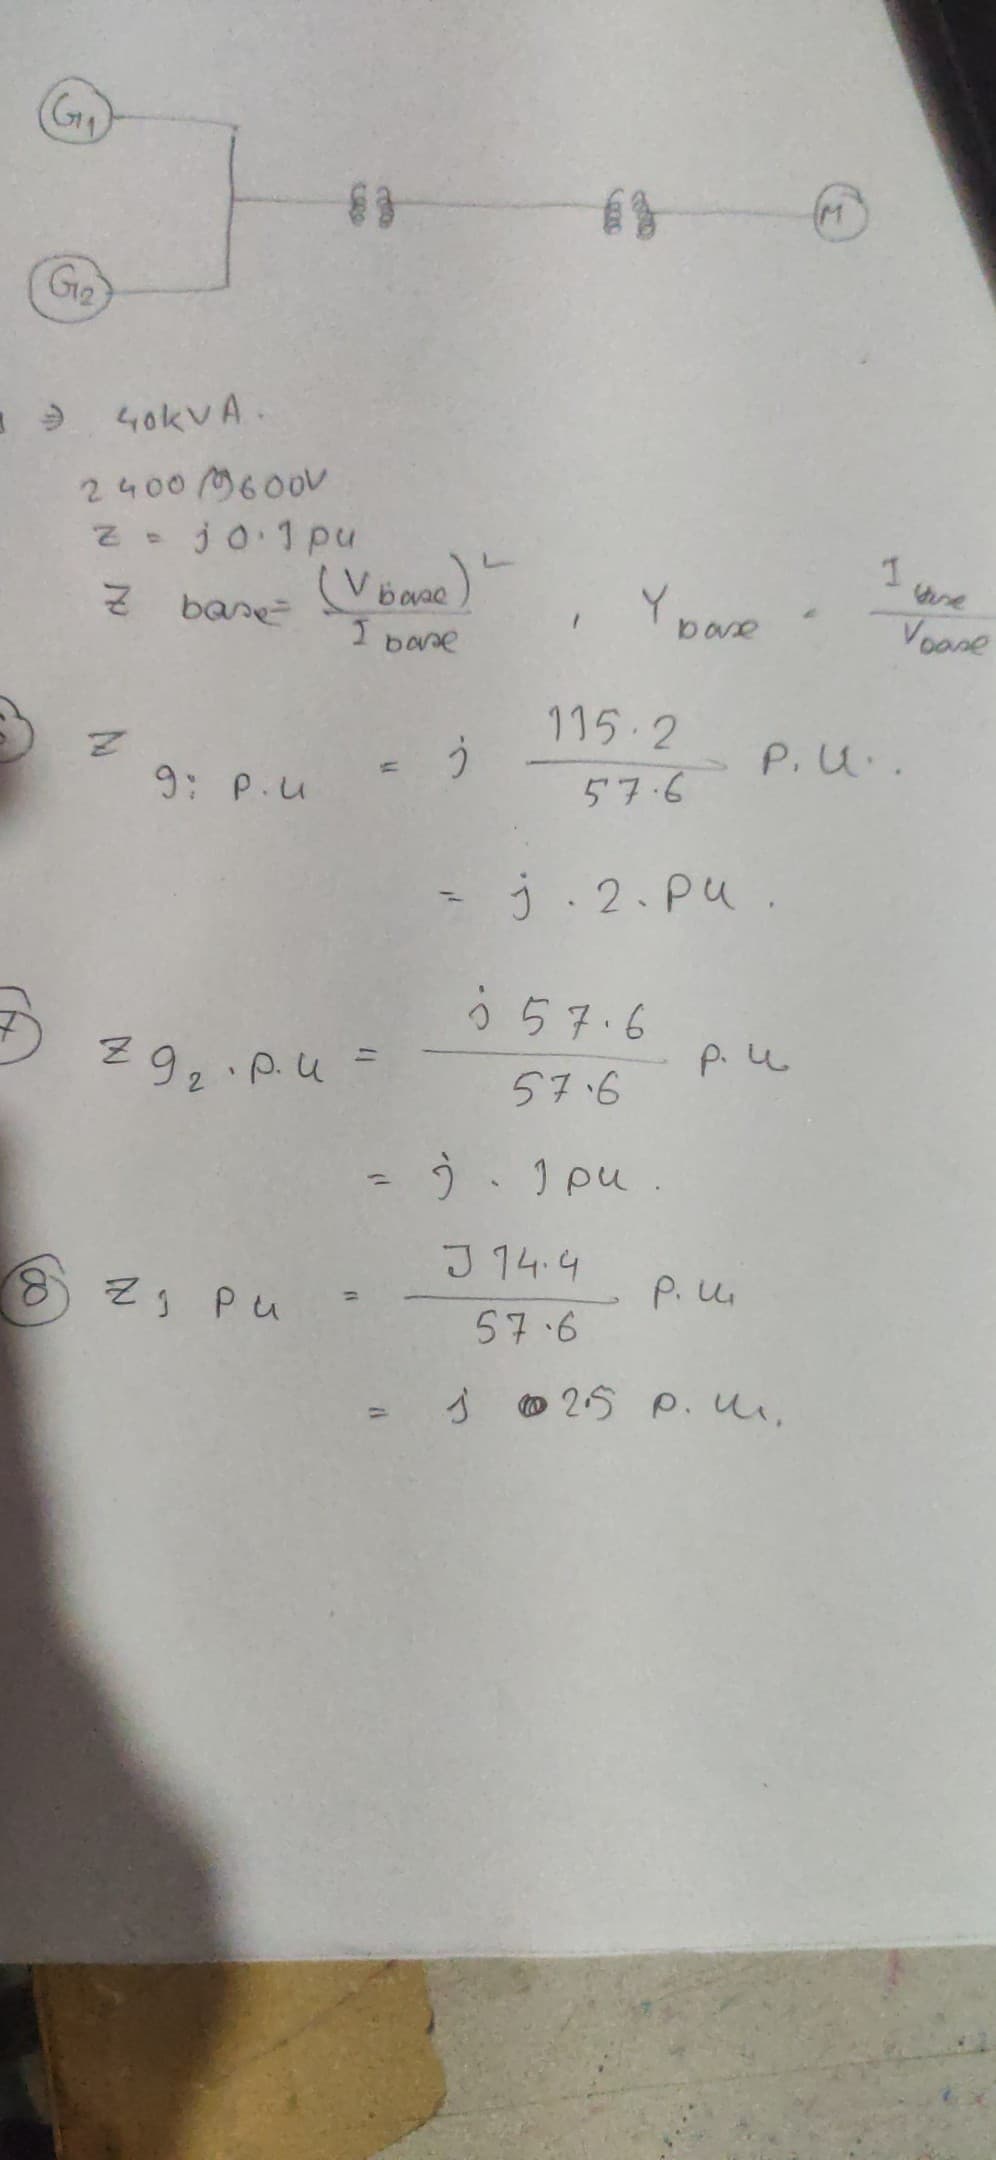 G1
M
G2
⇒ 40KVA.
2400/9600V
Z = j0.1pu
Z base = (V base)² / I base , Y base = I base / V base
Z g: p.u = j 115.2 / 57.6 p.u..
= j . 2. pu .
7 Z g2 . p.u = j 57.6 / 57.6 p.u
= j . 1 pu .
8 Z1 pu = J 14.4 / 57.6 p.u
= j 25 p.u.